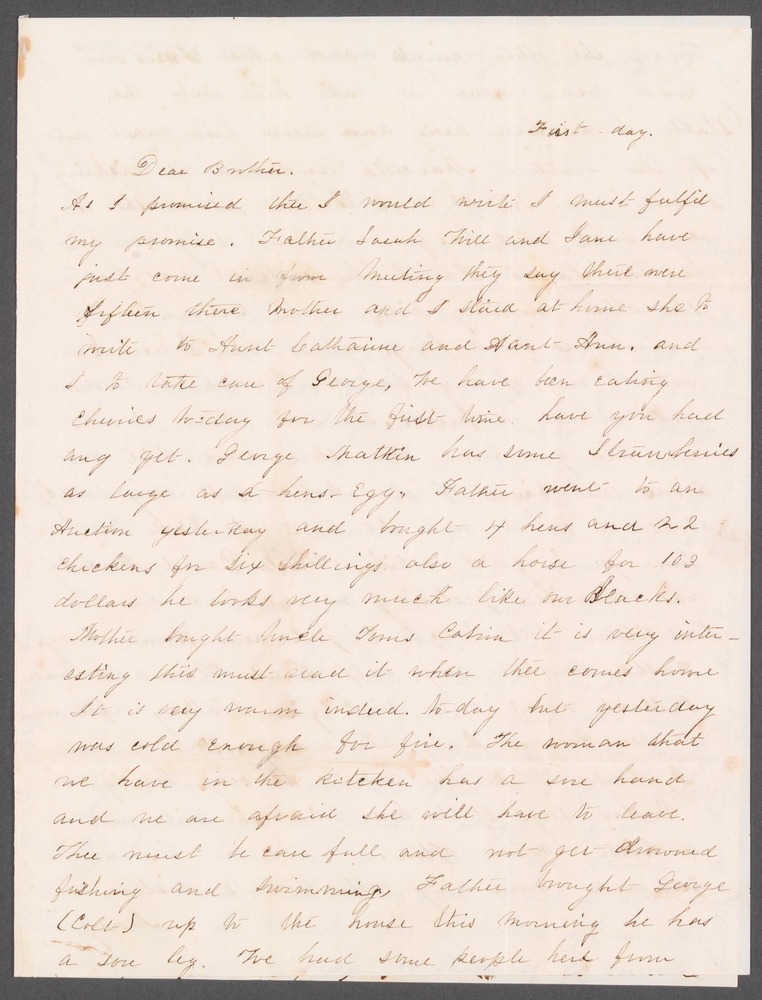 First-day.
Dear Brother.
As I promised thee I would write I must fulfil
my promise. Father Sarah Will and Jane have
just come in from Meeting they say there were
fifteen there Mother and I staid at home she to
write to Aunt Catharine and Aunt Ann. and
I to take care of George, We have been eating
Cherries to=day for the first time. have you had
any yet. George Matkin has some Strawberries
as large as a hens-Egg. Father went to an
Auction yesterday and bought 4 hens and 22
chickens for Six Shillings also a horse for 103
dollars he looks very much like our Blacks.
Mother bought Uncle Toms Cabin it is very inter-
esting thee must read it when thee comes home
It is very warm indeed. to-day but yesterday
was cold enough for fire. The woman that
we have in the kitchen has a sore hand
and we are afraid she will have to leave.
Thee must be care full and not get drowned
fishing and swimming, Father brought George
(Colt) up to the house this morning he has
a sore leg. We had some people here from